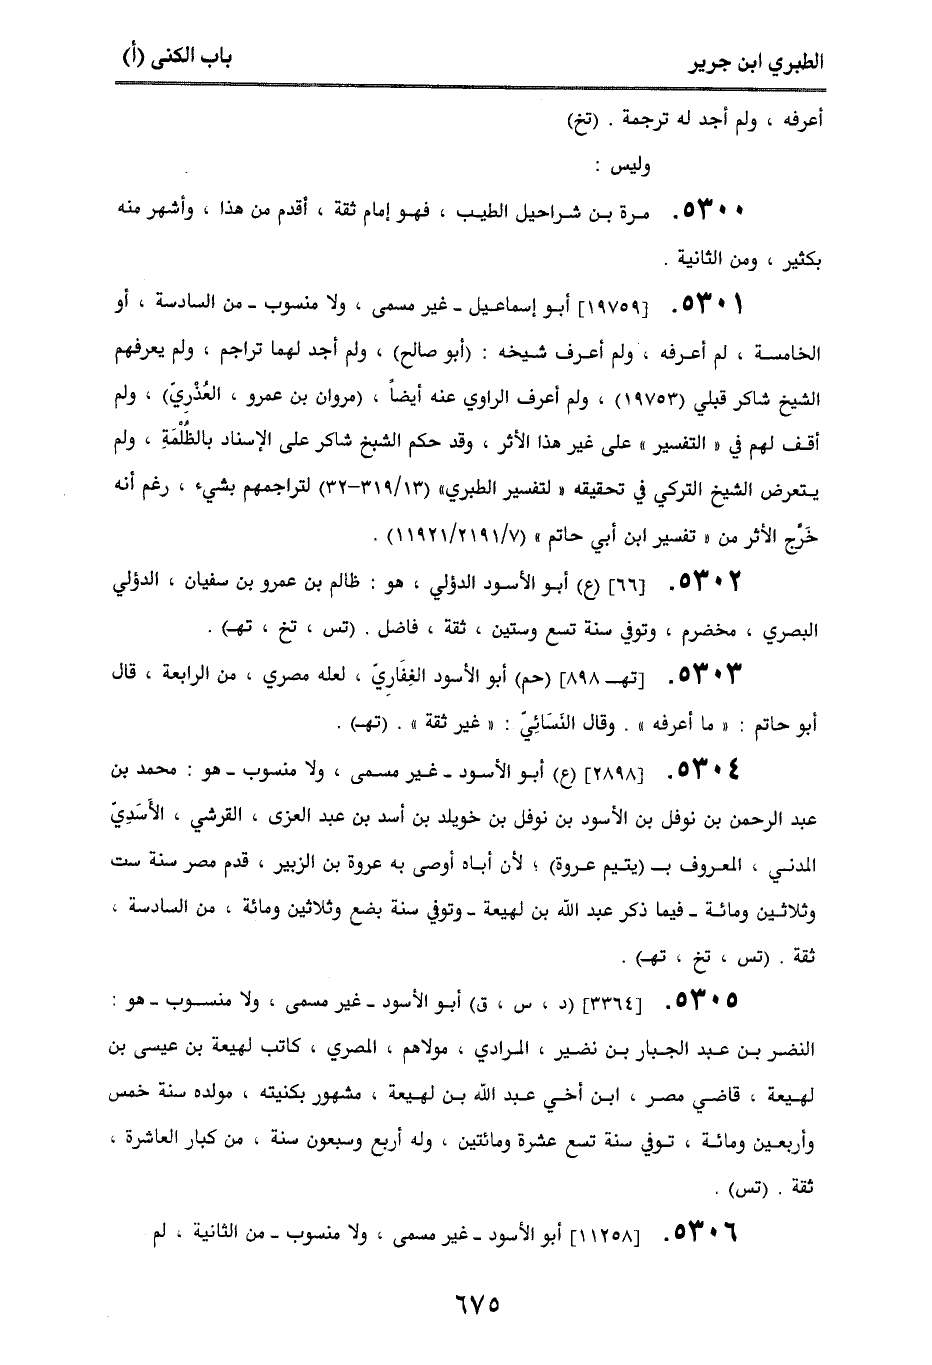 الطبري ابن جرير
باب الكنى (أ)
أعرفه ، ولم أجد له ترجمة . (تخ)
وليس :
٥٣٠٠. مرة بن شراحيل الطيب ، فهو إمام ثقة ، أقدم من هذا ، وأشهر منه
بكثير ، ومن الثانية .
٥٣٠١. [١٩٧٥٩] أبو إسماعيل ـ غير مسمى ، ولا منسوب ـ من السادسة ، أو
الخامسة ، لم أعرفه ، ولم أعرف شيخه : (أبو صالح) ، ولم أجد لهما تراجم ، ولم يعرفهم
الشيخ شاكر قبلي (١٩٧٥٣) ، ولم أعرف الراوي عنه أيضاً ، (مروان بن عمرو ، العُذْريّ) ، ولم
أقف لهم في « التفسير » على غير هذا الأثر ، وقد حكم الشيخ شاكر على الإسناد بالظُّلْمَةِ ، ولم
يتعرض الشيخ التركي في تحقيقه « لتفسير الطبري» (٣١٩/١٣–٣٢) لتراجمهم بشيء ، رغم أنه
خَرَّج الأثر من « تفسير ابن أبي حاتم » (١١٩٢١/٢١٩١/٧) .
٥٣٠٢. [٦٦] (ع) أبو الأسود الدؤلي ، هو : ظالم بن عمرو بن سفيان ، الدؤلي
البصري ، مخضرم ، وتوفي سنة تسع وستين ، ثقة ، فاضل . (تس ، تخ ، تهـ) .
٥٣٠٣. [تهـ ـ ٨٩٨] (حم) أبو الأسود الغِفَاريّ ، لعله مصري ، من الرابعة ، قال
أبو حاتم : « ما أعرفه » . وقال النَسَائِيّ : « غير ثقة » . (تهـ) .
٥٣٠٤. [٢٨٩٨] (ع) أبو الأسود ـ غير مسمى ، ولا منسوب ـ هو : محمد بن
عبد الرحمن بن نوفل بن الأسود بن نوفل بن خويلد بن أسد بن عبد العزى ، القرشي ، الأَسَديّ
المدني ، المعروف بـ (يتيم عروة) ؛ لأن أباه أوصى به عروة بن الزبير ، قدم مصر سنة ست
وثلاثين ومائة ـ فيما ذكر عبد الله بن لهيعة ـ وتوفي سنة بضع وثلاثين ومائة ، من السادسة ،
ثقة . (تس ، تخ ، تهـ) .
٥٣٠٥. [٣٣٦٤] (د ، س ، ق) أبو الأسود ـ غير مسمى ، ولا منسوب ـ هو :
النضر بن عبد الجبار بن نضير ، المرادي ، مولاهم ، المصري ، كاتب لهيعة بن عيسى بن
لهيعة ، قاضي مصر ، ابن أخي عبد الله بن لهيعة ، مشهور بكنيته ، مولده سنة خمس
وأربعين ومائة ، توفي سنة تسع عشرة ومائتين ، وله أربع وسبعون سنة ، من كبار العاشرة ،
ثقة . (تس) .
٥٣٠٦. [١١٢٥٨] أبو الأسود ـ غير مسمى ، ولا منسوب ـ من الثانية ، لم
٦٧٥